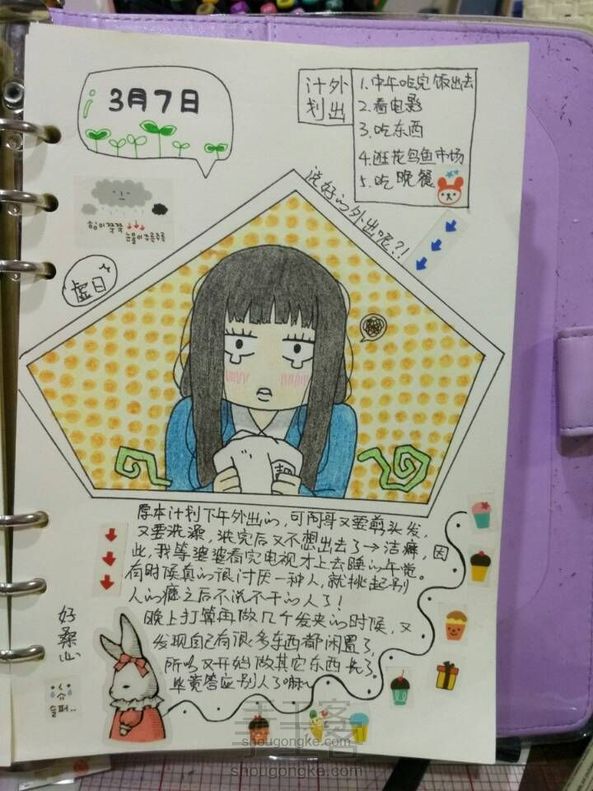 3月7日
外出
计划
1.中午吃完饭出去
2.看电影
3.吃东西
4.逛花鸟鱼市场
5.吃晚餐
说好的外出呢?!
虚日
原本计划下午外出的,可阿哥又要剪头发,
又要洗澡,洗完后又不想出去了→洁癖,因
此,我等婆婆看完电视才上去睡的午觉。
有时候真的很讨厌一种人,就挑起别
人的瘾之后不说不干的人了!
晚上打算再做几个发夹的时候,又
发现自己有很多东西都闲置了,
所以又开始做其它东西去了,
毕竟答应别人了嘛
好桑心
슬퍼..
手工客
shougongke.com
shougongke.com